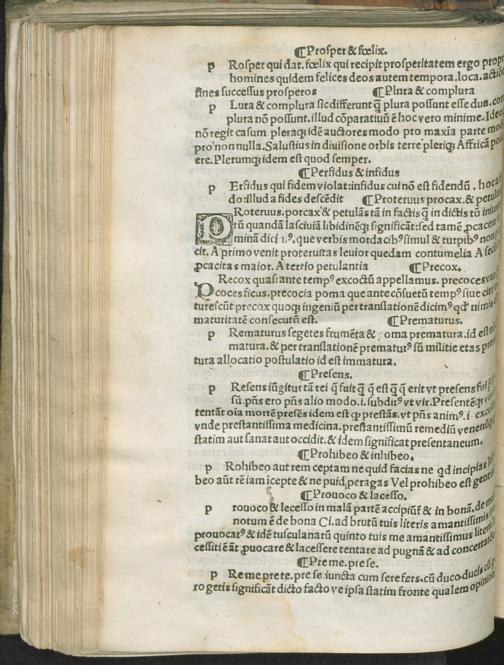 ¶Prosper & fœlix.
p Rosper qui dat. fœlix qui recipit prosperitatem ergo
homines quidem felices deos autem tempora. loca.
fines successus prosperos ¶Plura & complura
p Lura & complura sic differunt ꝙ plura possunt esse duo.
plura nō possunt. illud cōparatiuū ē hoc vero minime. Ideo
nō regit casum pleraqꝫ idē auctores modo pro maxia parte
pro non nulla. Salustius in diuisione orbis terre pleriqꝫ Affricā
ere. Plerumqꝫ idem est quod semper.
¶Perfidus & infidus
p Erfidus qui fidem violat: infidus cui nō est fidendū.
do: illud a fides descēdit ¶Proteruus procax. &
PRoteruus. porcax & petulās tā in factis ꝙ in dictis tū
tū quandā lasciuiā libidinēqꝫ significāt: sed tamē ꝓcacem
minā dici que verbis mordacibꝰ simul & turpibꝰ
cit. A primo venit proteruitas leuior quedam contumelia A
ꝓcacitas maior. A tertio petulantia ¶Precox.
PRecox quasi ante tempꝰ excoctū appellamus. precoces
cocesficus. precocia poma que ante cōsuetū tempꝰ siue
turescūt precox quoqꝫ ingeniū per translationē dicimꝰ
maturitatē consecutū est. ¶Prematurus.
p Rematurus segetes frumēta & poma prematura. id est
matura. & per translationē prematurꝰ sū militie etas
tura allocatio postulatio id est immatura.
¶Presens.
p Resens iūgitur tā rei ꝗ fuit ꝗ ꝗ est ꝗ ꝗ erit vt presens
sū. pn̄s ero pn̄s alio modo. i. subditꝰ vt vir.
tentāt oia mortē presēs idem est qꝫ prestās. vt pn̄s animꝰ. i.
vnde prestantissima medicina. prestantissimū remediū
statim aut sanat aut occidit. & idem significat presentaneum.
¶Prohibeo & inhibeo.
p Rohibeo aut rem ceptam ne quid facias ne qd incipias
beo aūt rē iam icepte & ne puid peragas Vel prohibeo est
¶Prouoco & lacesso.
p rouoco & lecesso in malā partē accipiūt & in bonā.
notum ē de bona Ci. ad brutū tuis literis amantissimis
prouocatꝰ & idē tusculanarū quinto tuis me amantissimus
cessiti ēāt ꝓuocare & lacessere tentare ad pugnā & ad
¶Pre me. pre se.
p Re me pre te. pre se iuncta cum sere fers. cū duco ducis
ro geris significāt dicto facto ve ipsa statim fronte qualem